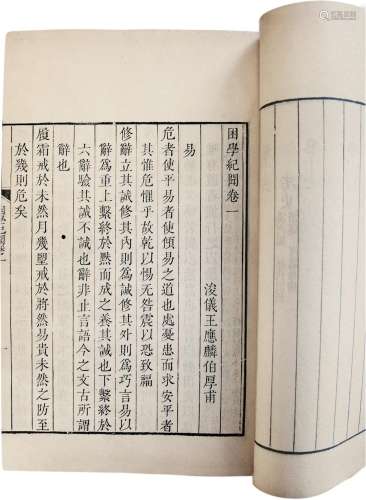 困學紀聞卷一
浚儀王應麟伯厚甫
易
危者使平易者使傾易之道也處憂患而求安平者
其惟危懼乎故乾以惕无咎震以恐致福
修辭立其誠修其內則為誠修其外則為巧言易以
辭為重上繫終於默而成之養其誠也下繫終於
六辭驗其誠不誠也辭非止言語今之文古所謂
辭也
履霜戒於未然月幾望戒於將然易貴未然之防至
於幾則危矣